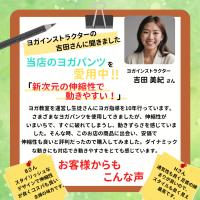 ヨガインストラクターの
吉田さんに聞きました
当店のヨガパンツを
愛用中!!
「新次元の伸縮性で
動きやすい！」
ヨガインストラクター
吉田 美紀 さん
ヨガ教室を運営し生徒さんにヨガ指導を10年行っています。
さまざまなヨガパンツを使用してきましたが、伸縮性が
いまいちで、すぐに破れてしまうし、動きずらさを感じていま
した。そんな時、このお店の商品に出会い、安価で
伸縮性も良いと評判だったので購入してみました。ダイナミック
な動きにも対応でき動きやすさをとても感じています。
お客様からも
こんな声
Sさん
スタイリッシュな
デザインで伸縮性
が良くコスパも良い
Hさん